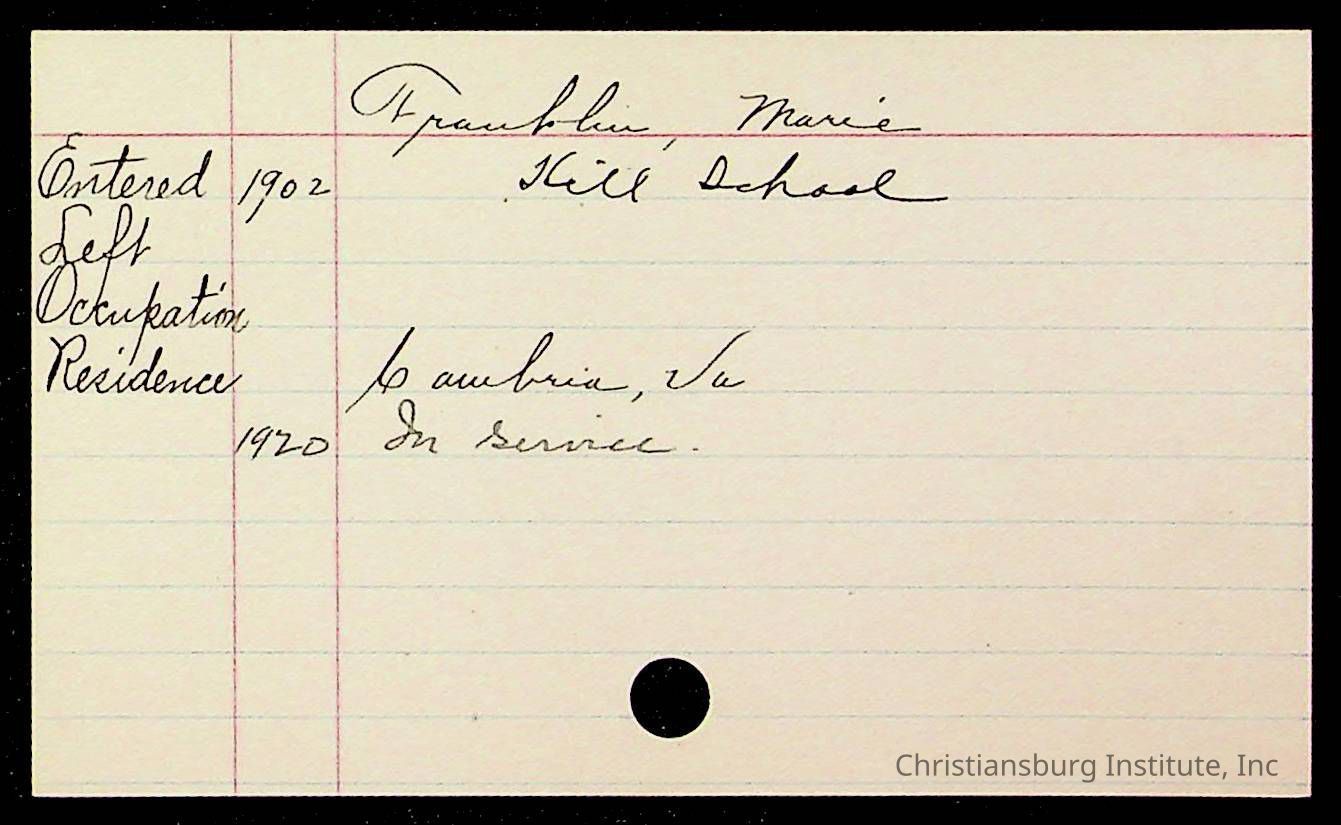 Franklin, Marie
Entered 1902 Hill School
Left
Occupation
Residence Cambria, Va
1920 In service.
Christiansburg Institute, Inc